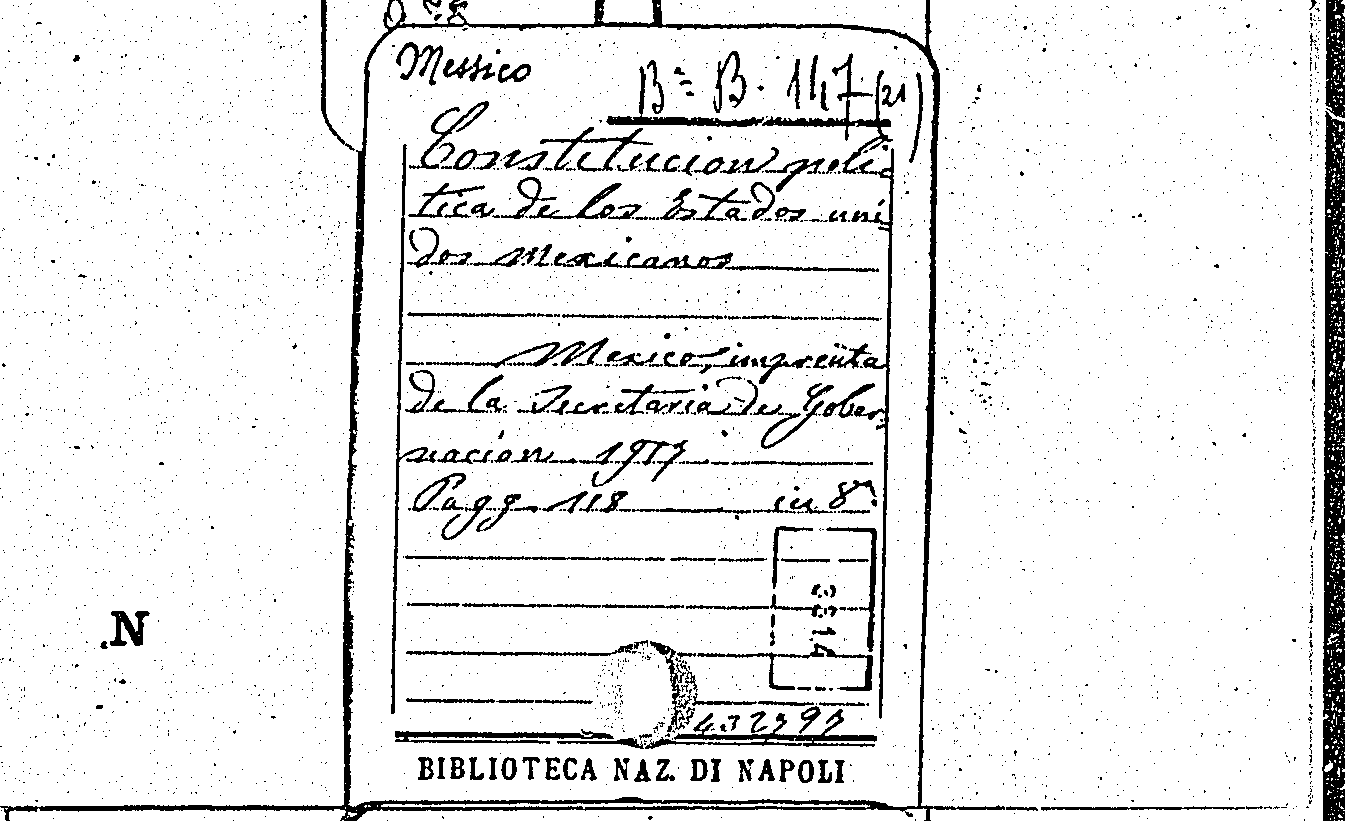 Messico
Bª B. 117 (21)
Constitucion poli-
tica de los Estados uni
dos Mexicanos
Mexico, imprenta
de la Secretaria de Gober-
nacion 1917
Pagg. 118 in 8º
3314
BIBLIOTECA NAZ. DI NAPOLI
N